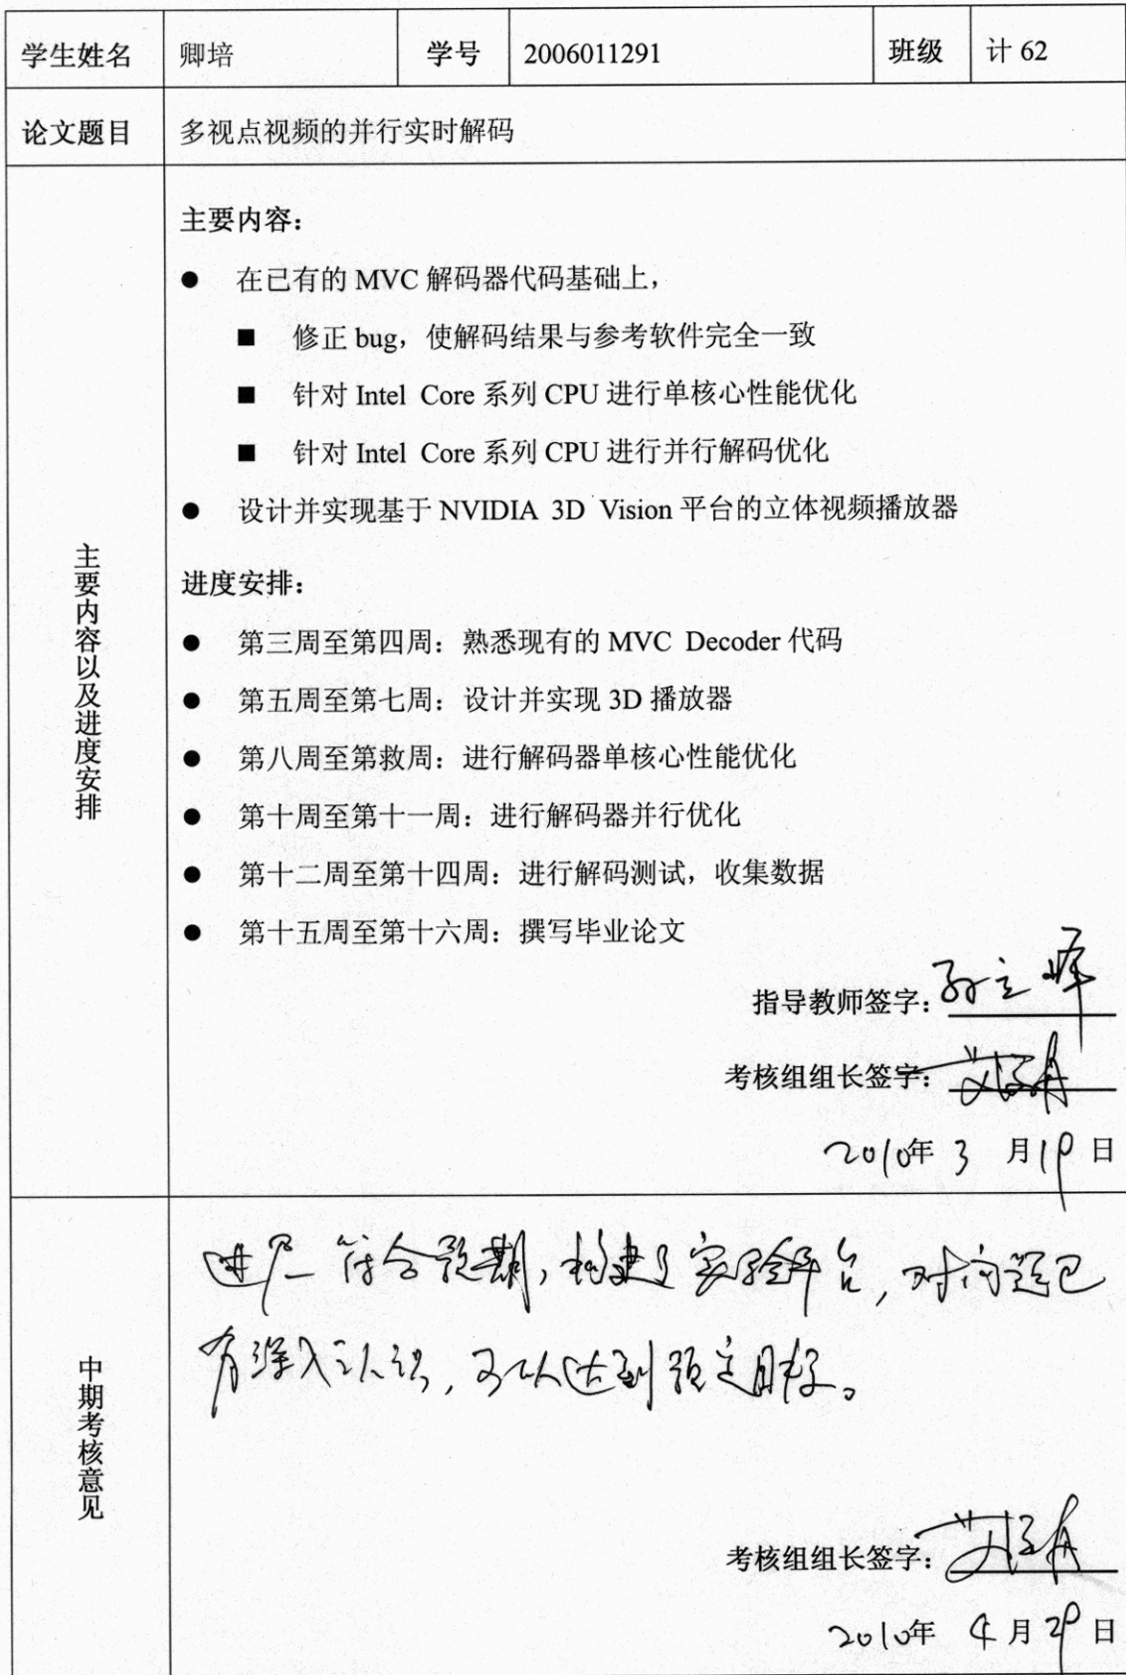 学生姓名 卿培 学号 2006011291 班级 计 62
论文题目 多视点视频的并行实时解码
主要内容以及进度安排
主要内容：
● 在已有的 MVC 解码器代码基础上，
■ 修正 bug，使解码结果与参考软件完全一致
■ 针对 Intel Core 系列 CPU 进行单核心性能优化
■ 针对 Intel Core 系列 CPU 进行并行解码优化
● 设计并实现基于 NVIDIA 3D Vision 平台的立体视频播放器
进度安排：
● 第三周至第四周：熟悉现有的 MVC Decoder 代码
● 第五周至第七周：设计并实现 3D 播放器
● 第八周至第救周：进行解码器单核心性能优化
● 第十周至第十一周：进行解码器并行优化
● 第十二周至第十四周：进行解码测试，收集数据
● 第十五周至第十六周：撰写毕业论文
指导教师签字：孙立峰
考核组组长签字：
2010年 3 月19日
中期考核意见
进度符合预期，构建了实验平台，对问题已
有深入认识，可以达到预定目标。
考核组组长签字：
2010年 4 月29日